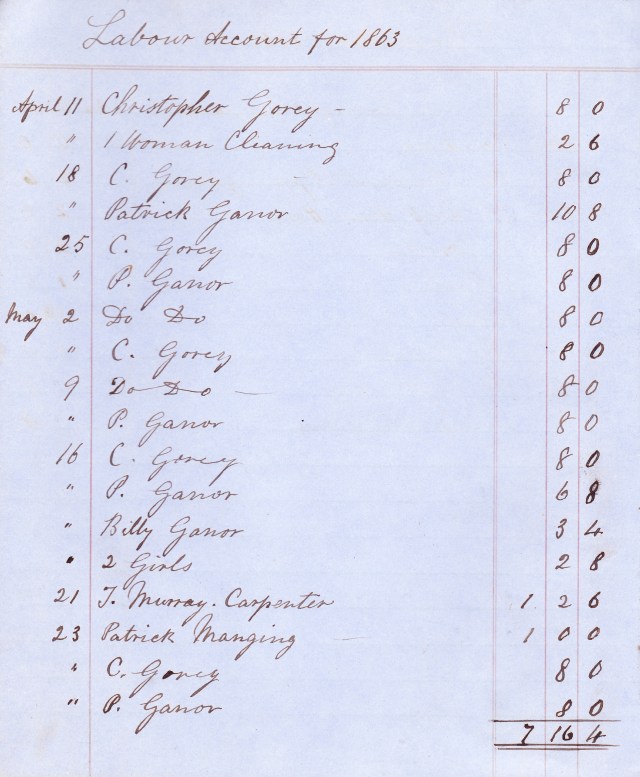 Labour Account for 1863
April 11 Christopher Gorey - 8 0
" 1 Woman Cleaning 2 6
18 C. Gorey 8 0
" Patrick Ganor 10 8
25 C. Gorey 8 0
" P. Ganor 8 0
May 2 Do Do 8 0
" C. Gorey 8 0
9 Do Do — 8 0
" P. Ganor 8 0
16 C. Gorey 8 0
" P. Ganor 6 8
" Billy Ganor 3 4
" 2 Girls 2 8
21 T. Murray. Carpenter 1 2 6
23 Patrick Manging 1 0 0
" C. Gorey 8 0
" P. Ganor 8 0
7 16 4